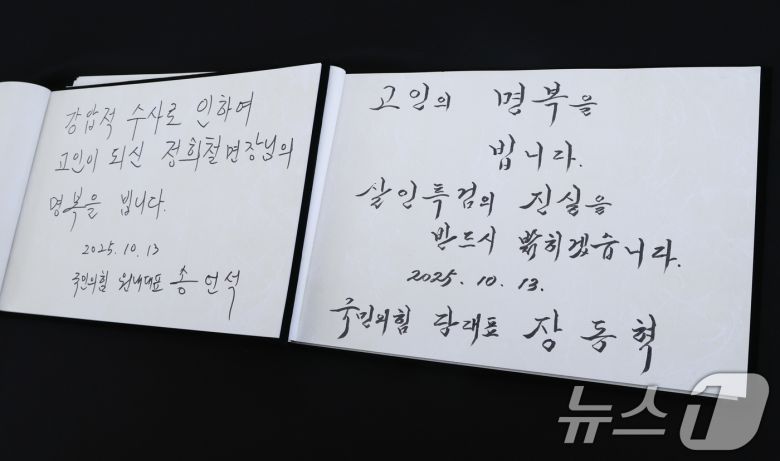 강압적 수사로 인하여
고인이 되신 정희철면장님의
명복을 빕니다.
2025. 10. 13
국민의힘 원내대표 송언석
고인의 명복을
빕니다.
살인특검의 진실을
반드시 밝히겠습니다.
2025. 10. 13.
국민의힘 당대표 장동혁
뉴스1